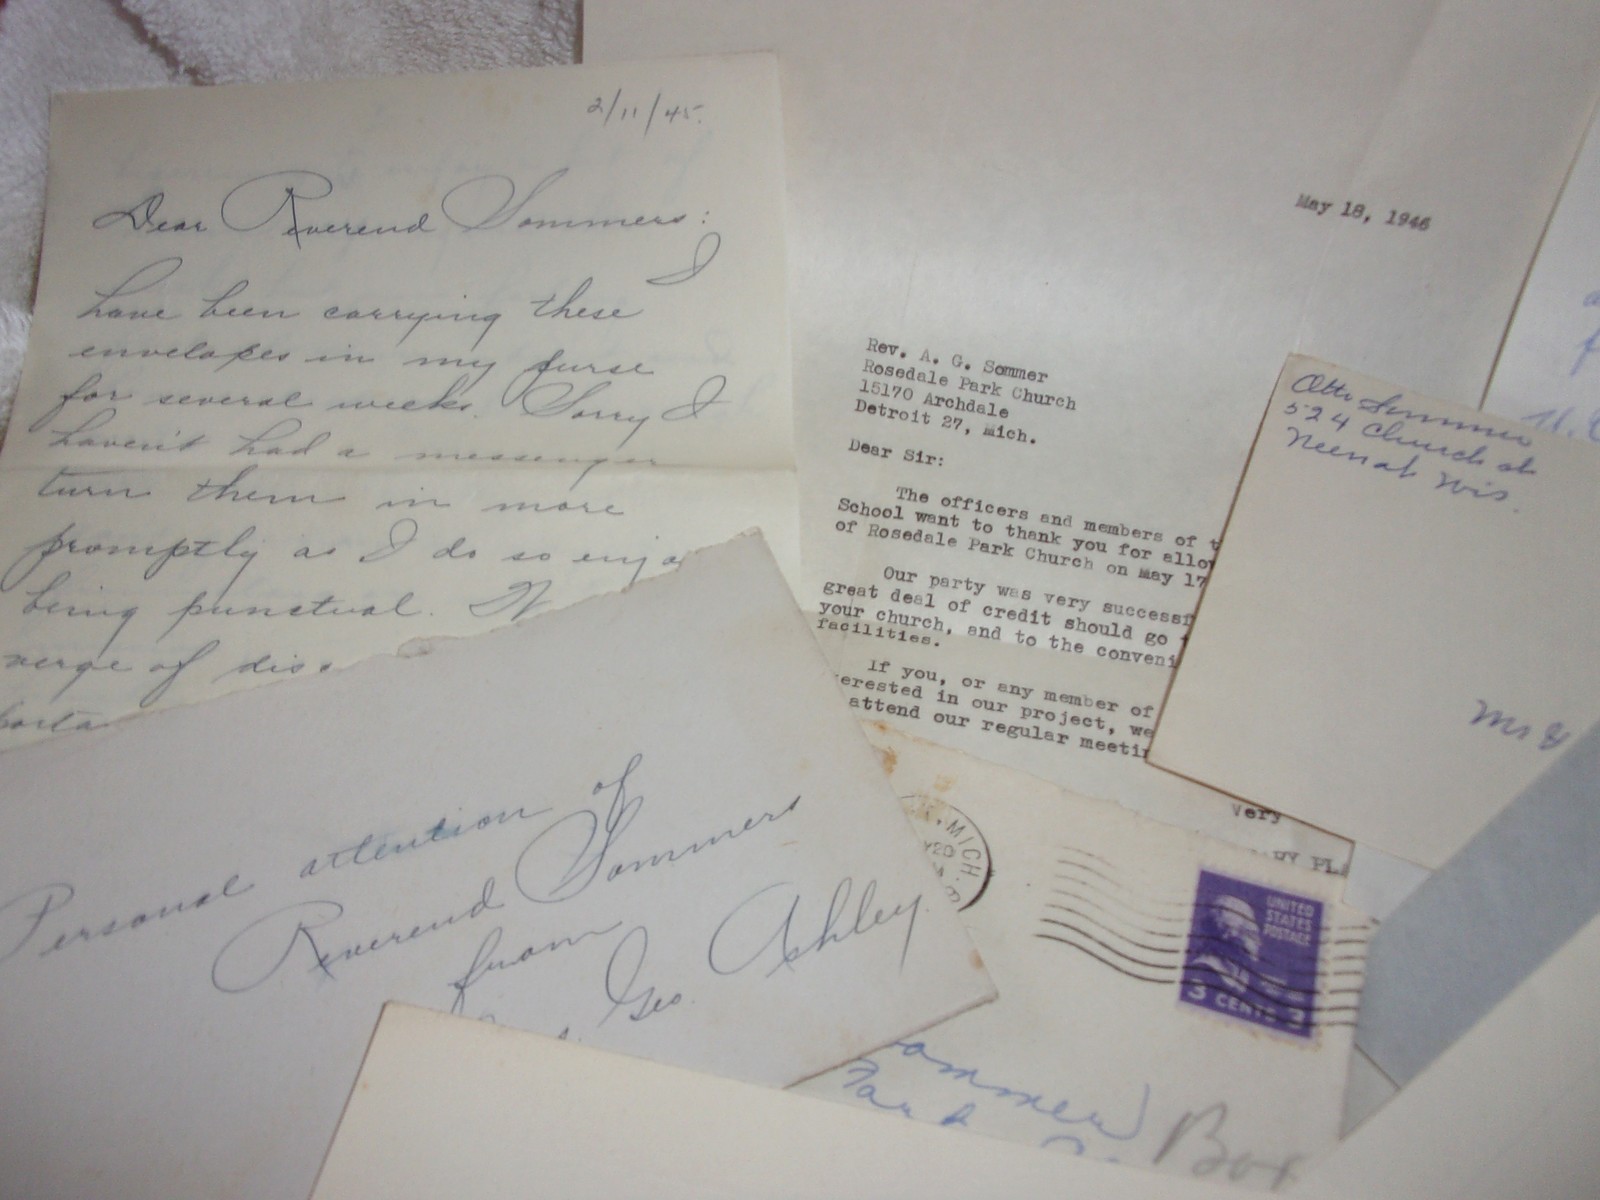 2/11/45.
Dear Reverend Sommers:
I
have been carrying these
envelopes in my purse
for several weeks. Sorry I
haven't had a messenger
turn them in more
promptly as I do so enjo
being punctual.
verge of dis
Personal attention of
Reverend Sommers
from
Geo. Ashley.
May 18, 1946
Rev. A. G. Sommer
Rosedale Park Church
15170 Archdale
Detroit 27, Mich.
Dear Sir:
The officers and members of t
School want to thank you for allow
of Rosedale Park Church on May 17
Our party was very successf
great deal of credit should go
your church, and to the conveni
facilities.
If you, or any member of
erested in our project, we
attend our regular meetin
Very
Otto Sommer
524 Church st
Neenah Wis.
MICH
UNITED
STATES
POSTAGE
3 CENTS 3
ommer
Park
Box